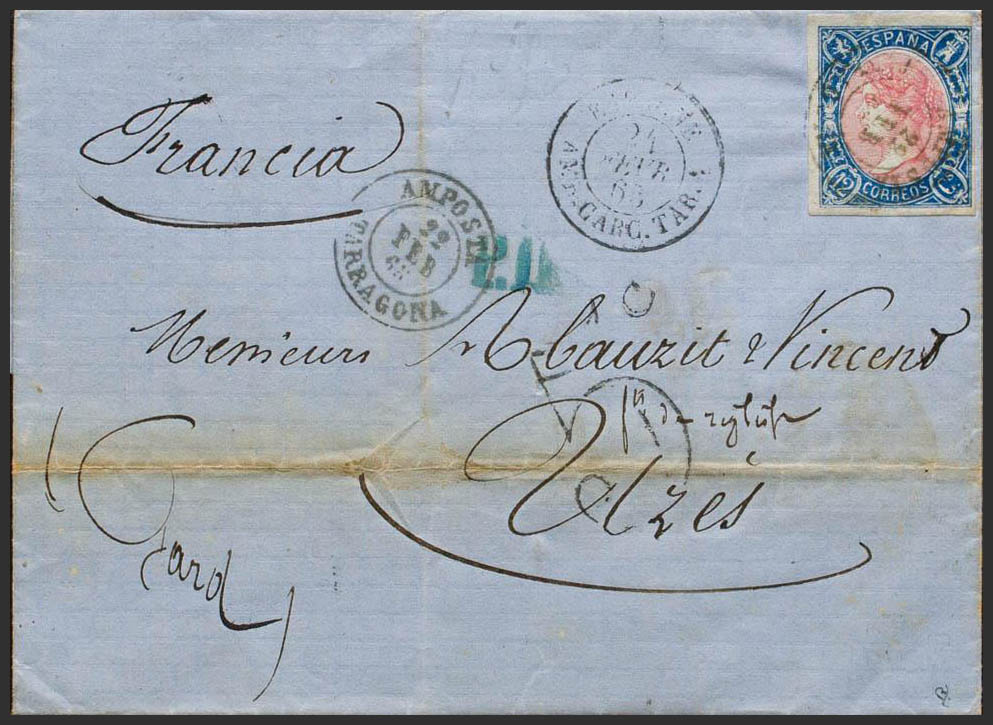 ESPAÑA
12 CORREOS Cs
Francia
24
65
AMB. CARC. TAR.
AMPOSTA
22
FEB
65
TARRAGONA
P.D.
Messieurs Abauzit & Vincent
Uzès
(Gard)